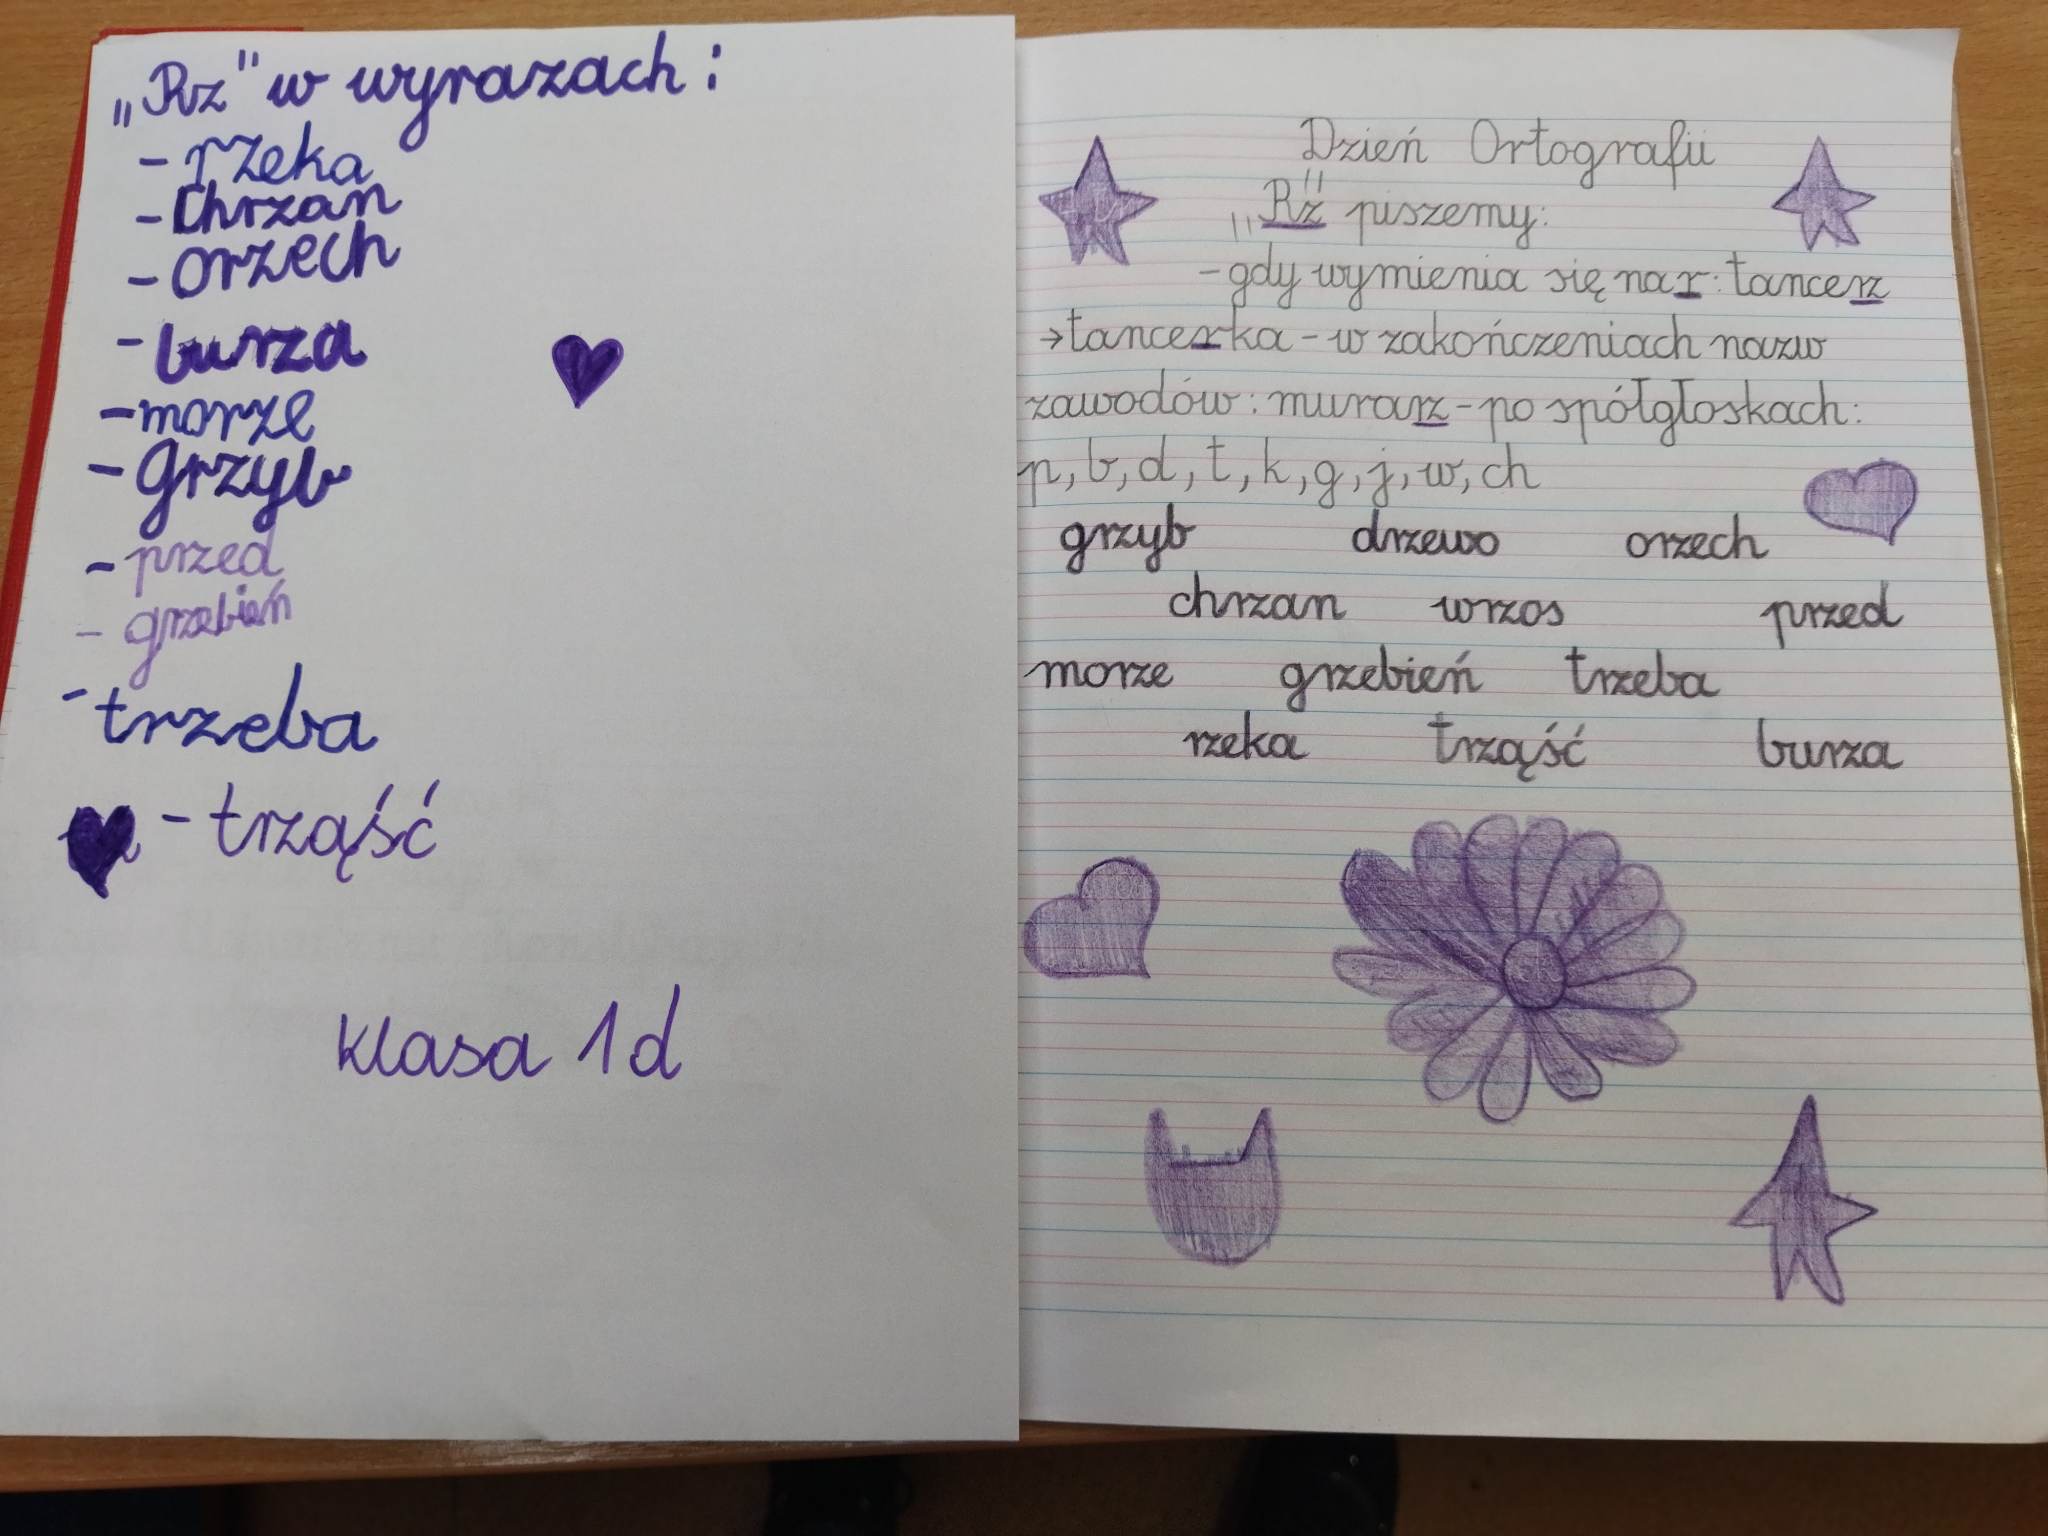 „Rz" w wyrazach:
- rzeka
- Chrzan
- orzech
- burza
- morze
- grzyb
- przed
- grzebień
- trzeba
- trząść
klasa 1d
Dzień Ortografii
„Rz" piszemy:
- gdy wymienia się na r: tancerz
→ tancerka - w zakończeniach nazw
zawodów: murarz - po spółgłoskach:
p, b, d, t, k, g, j, w, ch
grzyb drzewo orzech
chrzan wrzos przed
morze grzebień trzeba
rzeka trząść burza